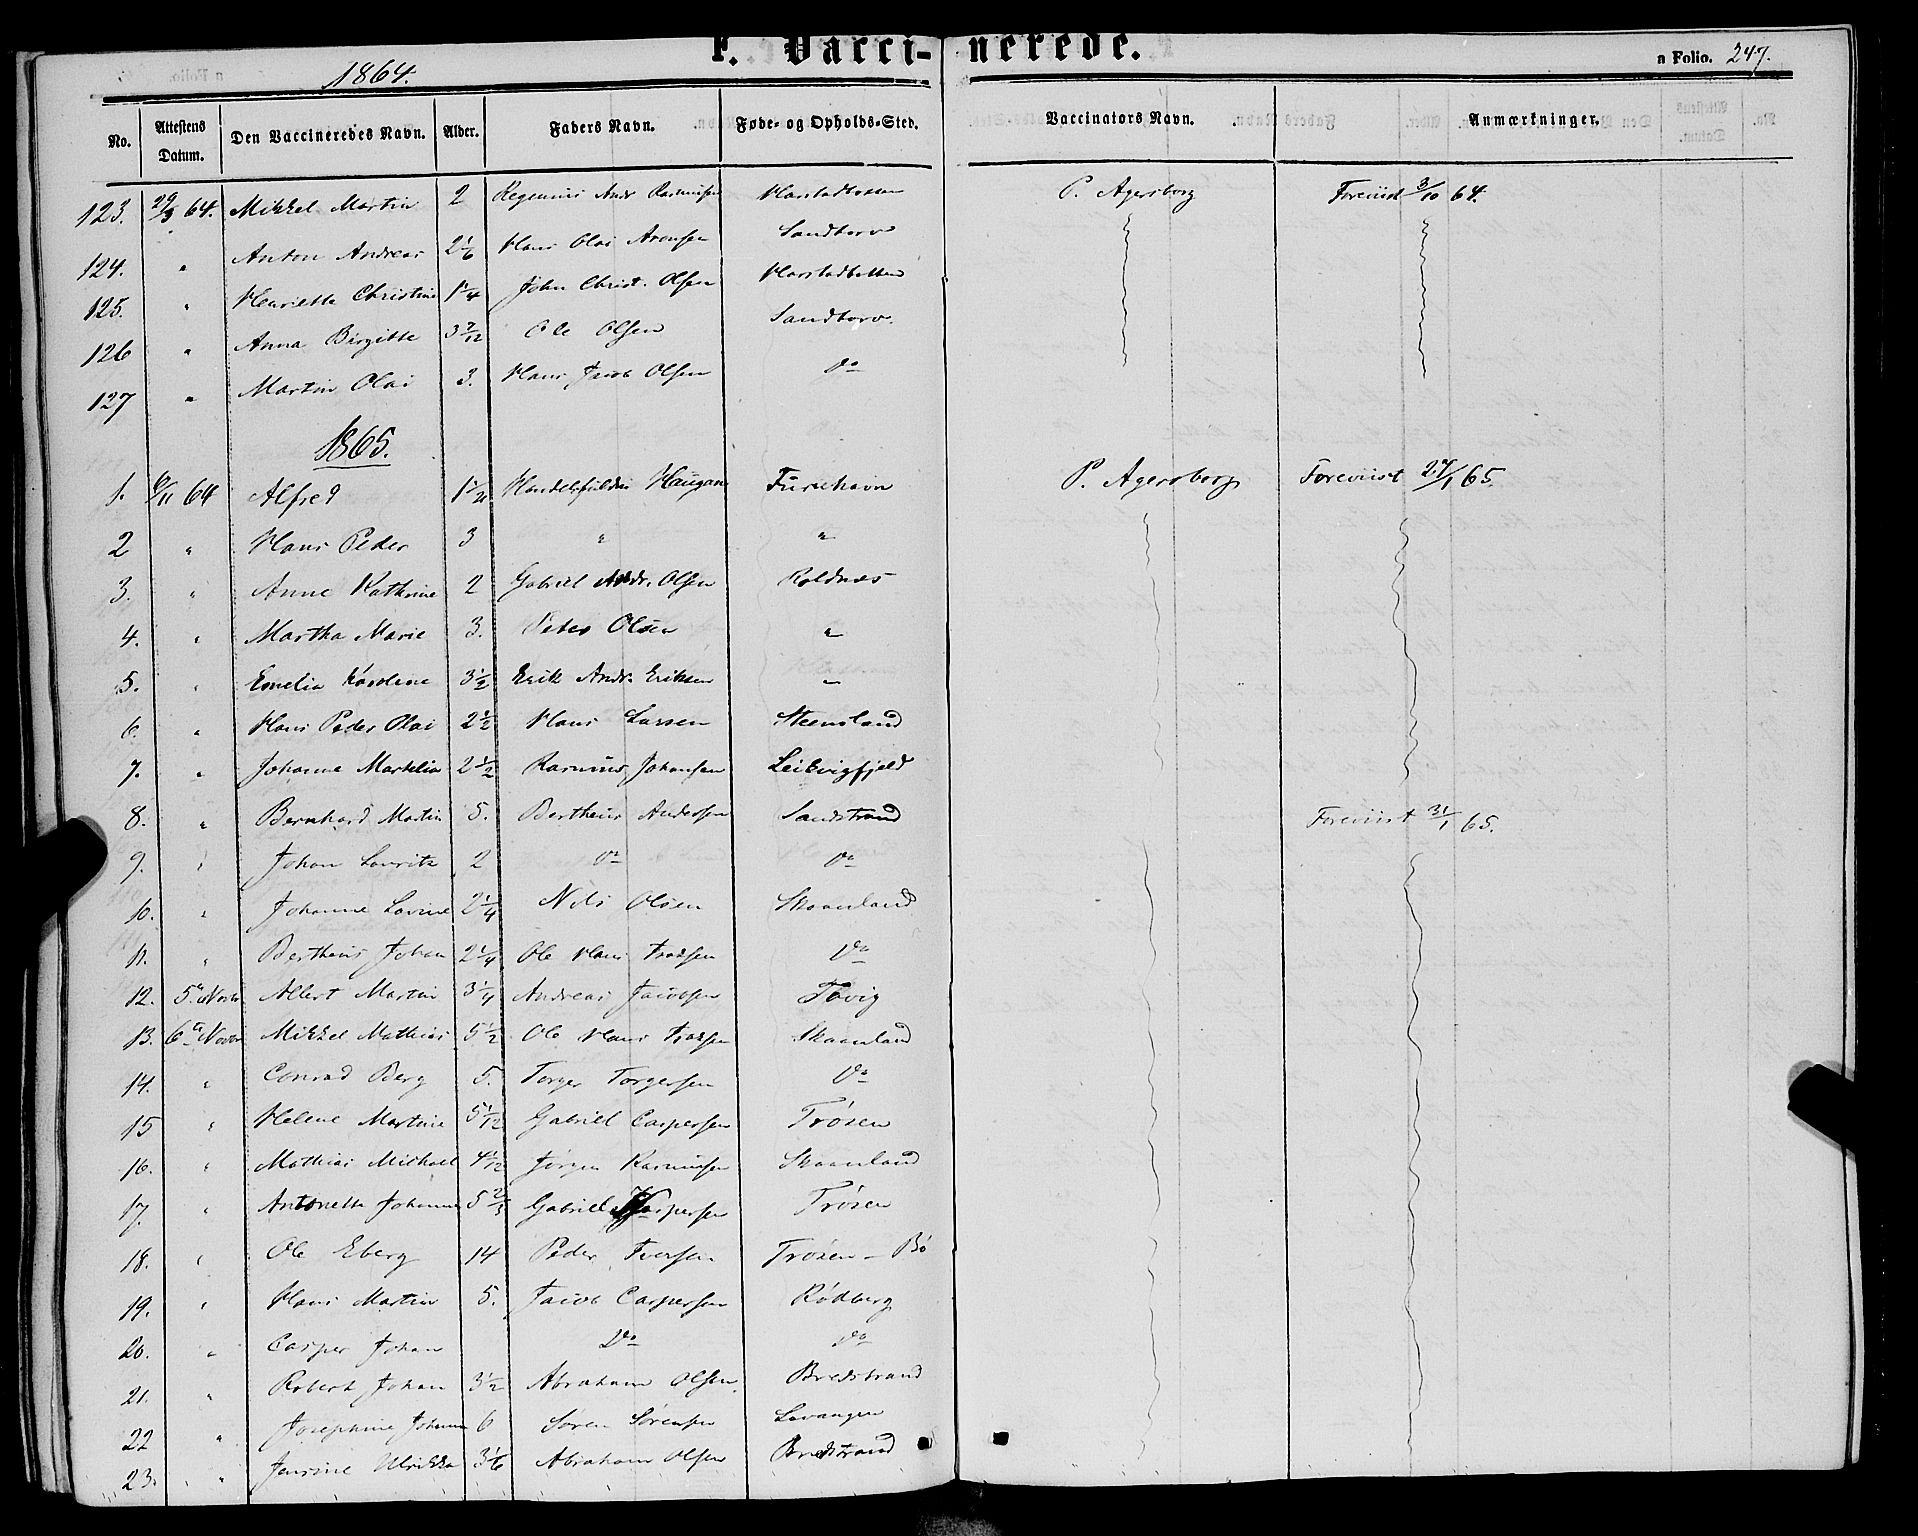 F. Vacci- nerede.
1864.
a Folio. 247.
No. Attestens Datum. Den Vaccineredes Navn. Alder. Faders Navn. Føde- og Opholds-Sted. Vaccinators Navn. Anmærkninger.
123. 29/9 64. Mikkel Martin 2 Regenius Andr Rasmusen Harstadbotten P. Agersborg Foreviist 3/10 64.
124. " Anton Andreas 2 1/6 Hans Olai Aronsen Sandtorv
125. " Henriette Christine 1 1/4 John Christ. Olsen Harstadbotten
126 " Anna Birgitte 3 7/12 Ole Olsen Sandtorv.
127 " Martin Olai 3. Hans Jacob Olsen Do
1865.
1. 6/11 64 Alfred 1 1/2 Haugan P. Agersborg Foreviist 27/1 65.
2 " Hans Peder 3 " "
3. " Anne Kathrine 2 Gabriel Andr. Olsen Roldnæs
4. " Martha Marie 3. Peter Olsen "
5. " Emelia Karoline 3 1/2 Erik Andr. Eriksen "
6. " Hans Peder Olai 2 1/2 Hans Larsen Steensland
7. " Johanne Martelia 2 1/2 Rasmus Johansen Leikvigfjeld
8. " Bernhard Martin 5. Bertheus Andersen Sandstrand Foreviist 31/1 65.
9. " Johan Lauritz 2 Do Do
10. " Johanne Lovine 2 1/4 Nils Olsen Skaanland
11. " Bertheus Johan 2 1/4 Ole Hans Do
12. 5te Novbr Albert Martin 3 1/4 Andreas Jacobsen Tovig
13. 6te Novbr Mikkel Mathias 5 1/2 Ole Hans Skaanland
14. " Conrad Berg 5. Torger Torgersen Do
15 " Helene Martine 5 1/12 Gabriel Caspersen Trøsen
16. " Mathias Michael 4 1/12 Jørgen Rasmusen Skaanland
17. " Antonette Johanne 5 2/3 Gabriel Kaspersen Trøsen
18. " Ole Eberg 14 Peder Iversen Trøsen - Bö
19. " Hans Martin 5. Jacob Caspersen Rödberg
20. " Casper Johan Do Do
21. " Robert Johan 3 1/2 Abraham Olsen. Bredstrand
22 " Josephine Johanne 6 Søren Sørensen Lavangen
23. " Jensine Ulrikka 3 1/6 Abraham Olsen Bredstrand